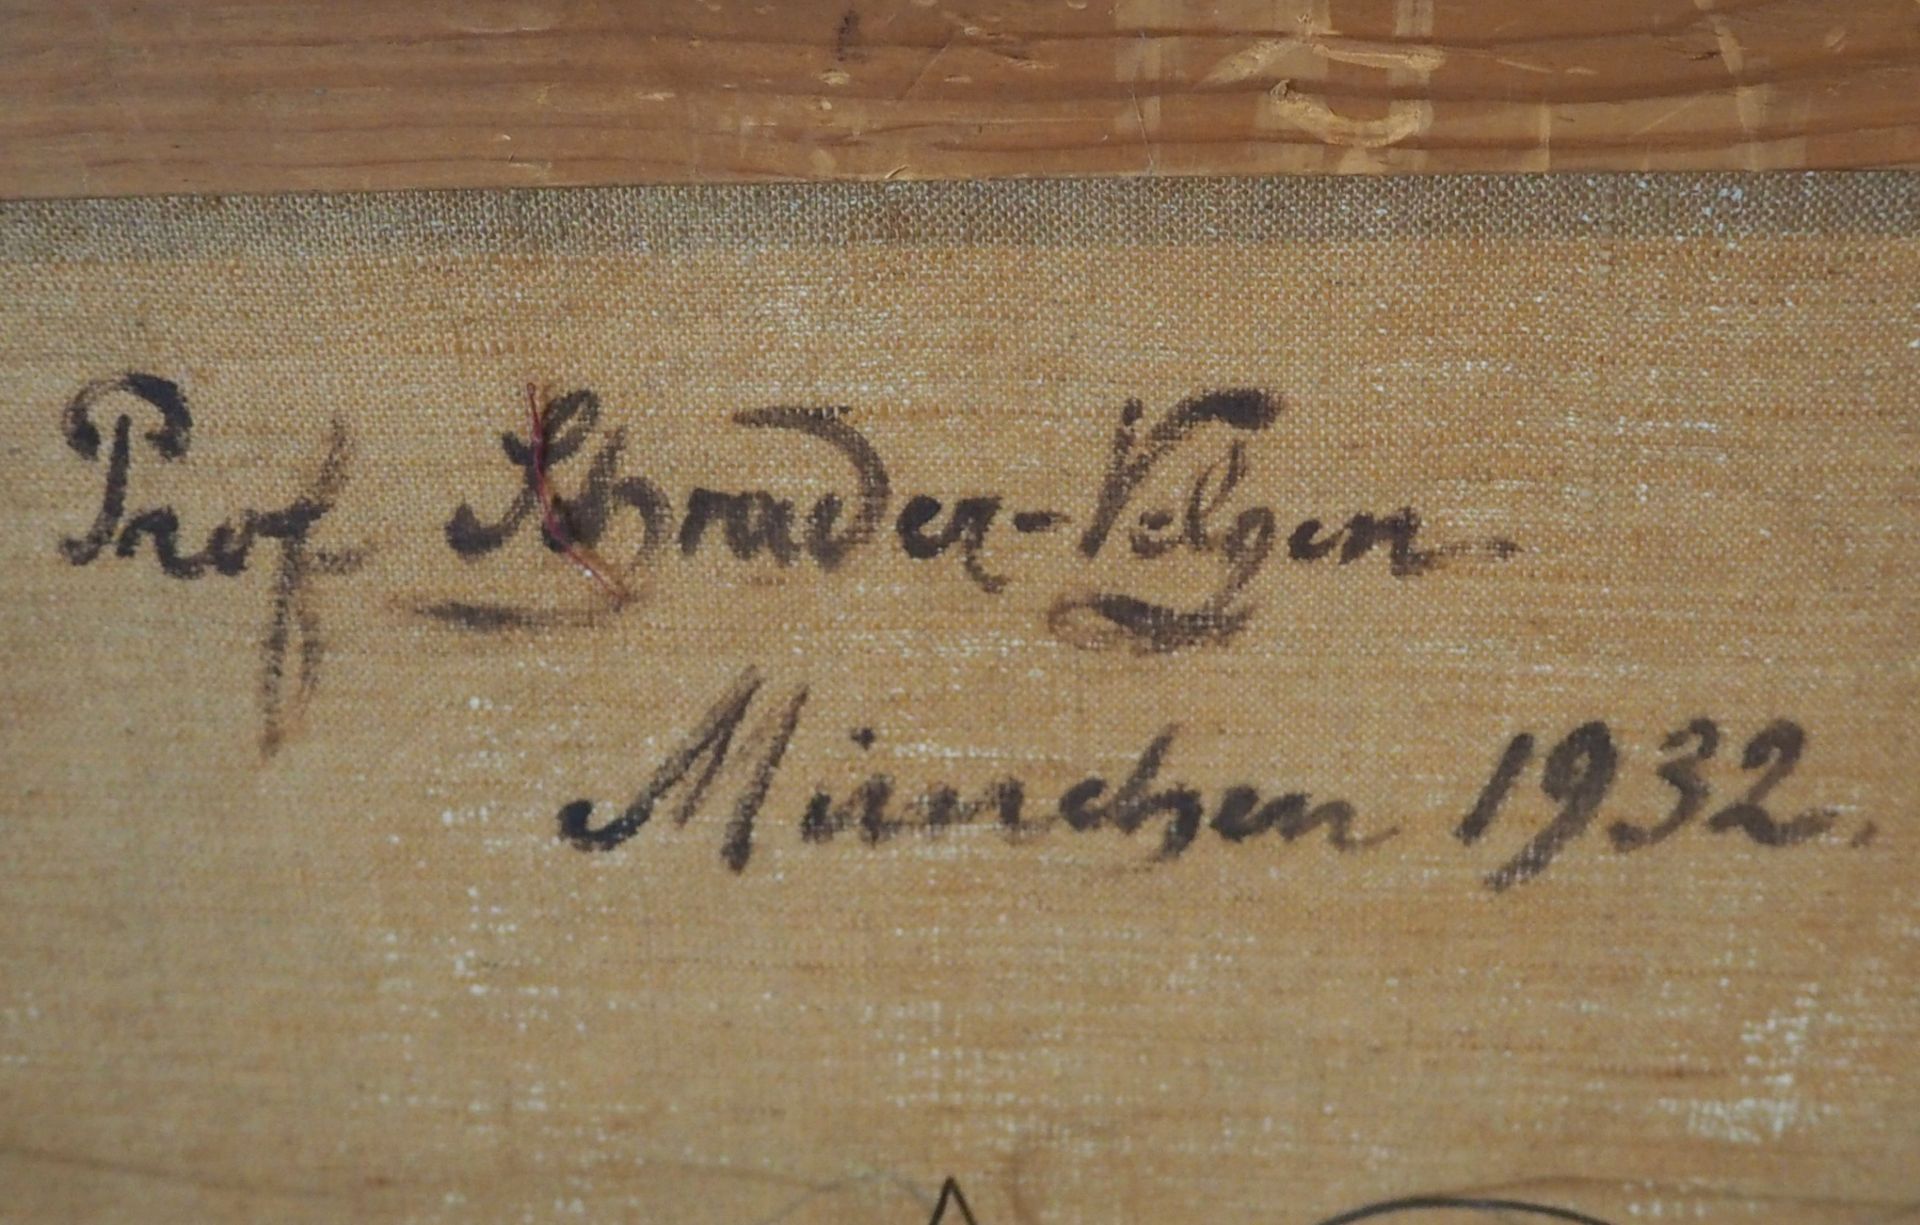 Prof Schrader-Velgen
München 1932.